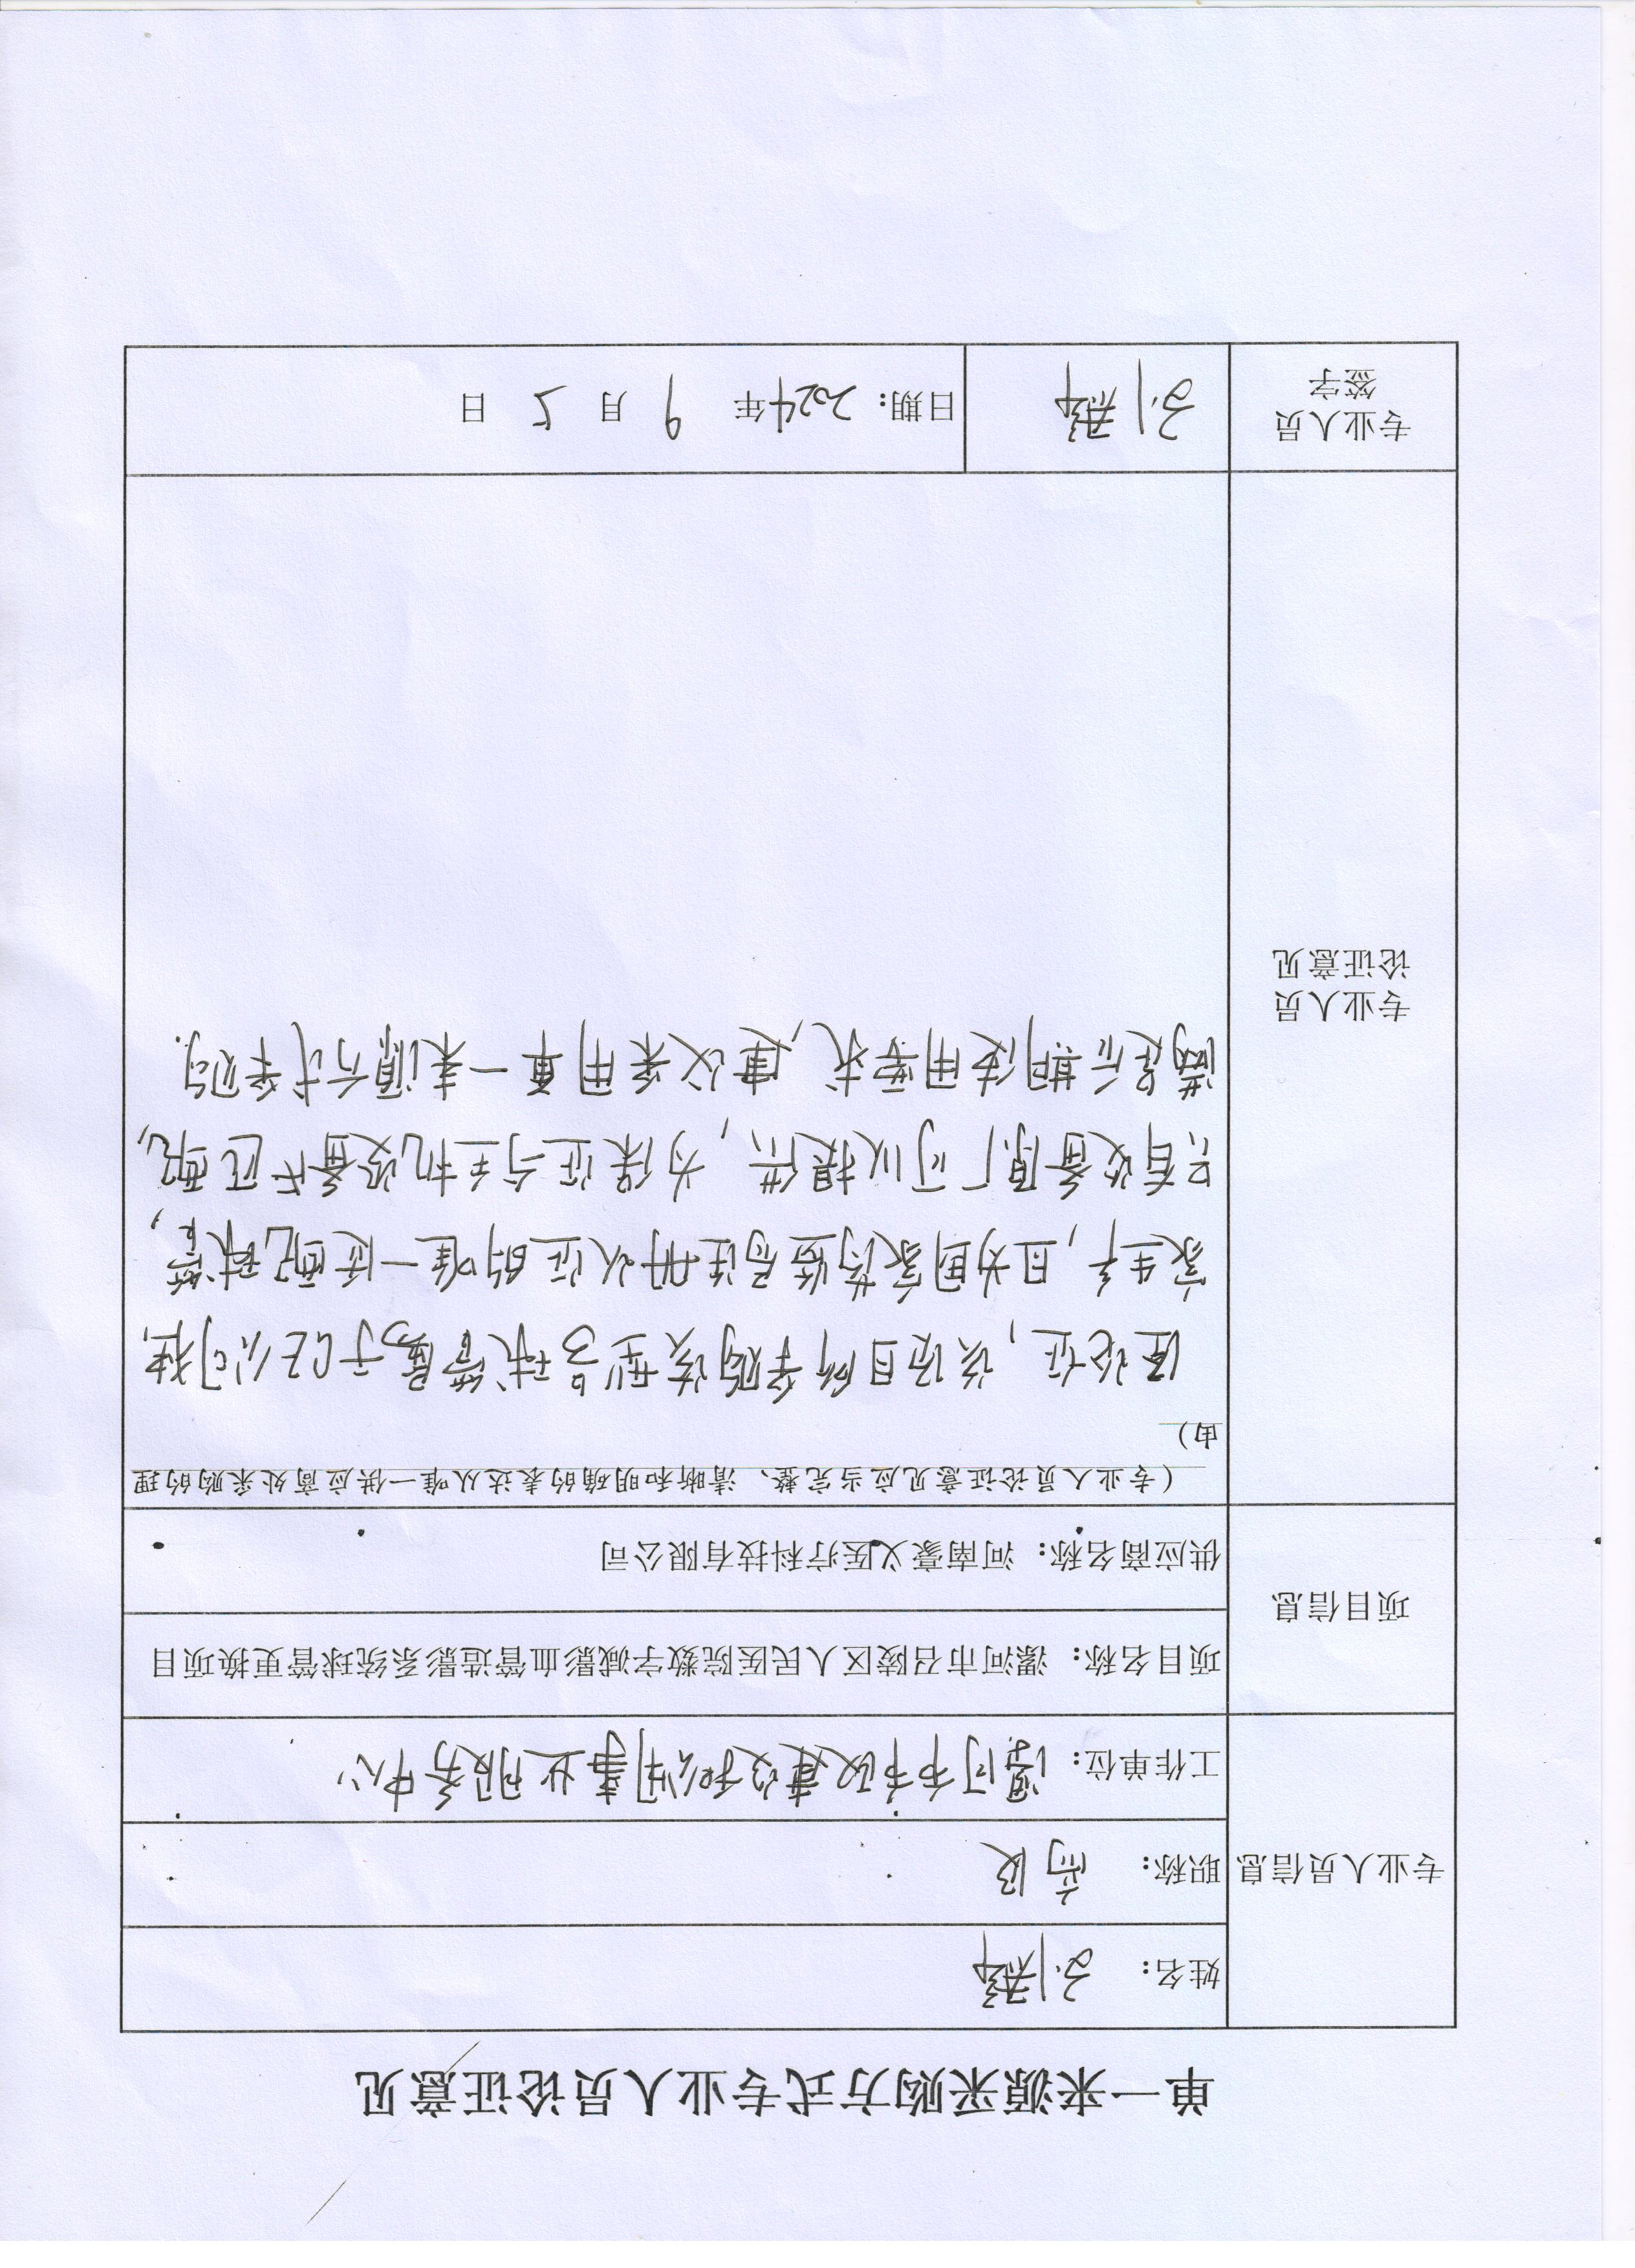 单一来源采购方式专业人员论证意见
专业人员信息
姓名：
职称： 高级
工作单位： 漯河市市政建设和公用事业服务中心
项目信息
项目名称：漯河市召陵区人民医院数字减影血管造影系统球管更换项目
供应商名称：河南豪义医疗科技有限公司
专业人员
论证意见
（专业人员论证意见应当完整、清晰和明确的表达从唯一供应商处采购的理
由）
经论证，该项目所采购该型号球管属于GE公司独
家生产，且为国家药监局注册认证的唯一适配球管，
只有设备原厂可以提供，为保证与主机设备匹配，
满足后期使用需求，建议采用单一来源方式采购.
专业人员
签字
刘
日期：2024年 9 月 5 日